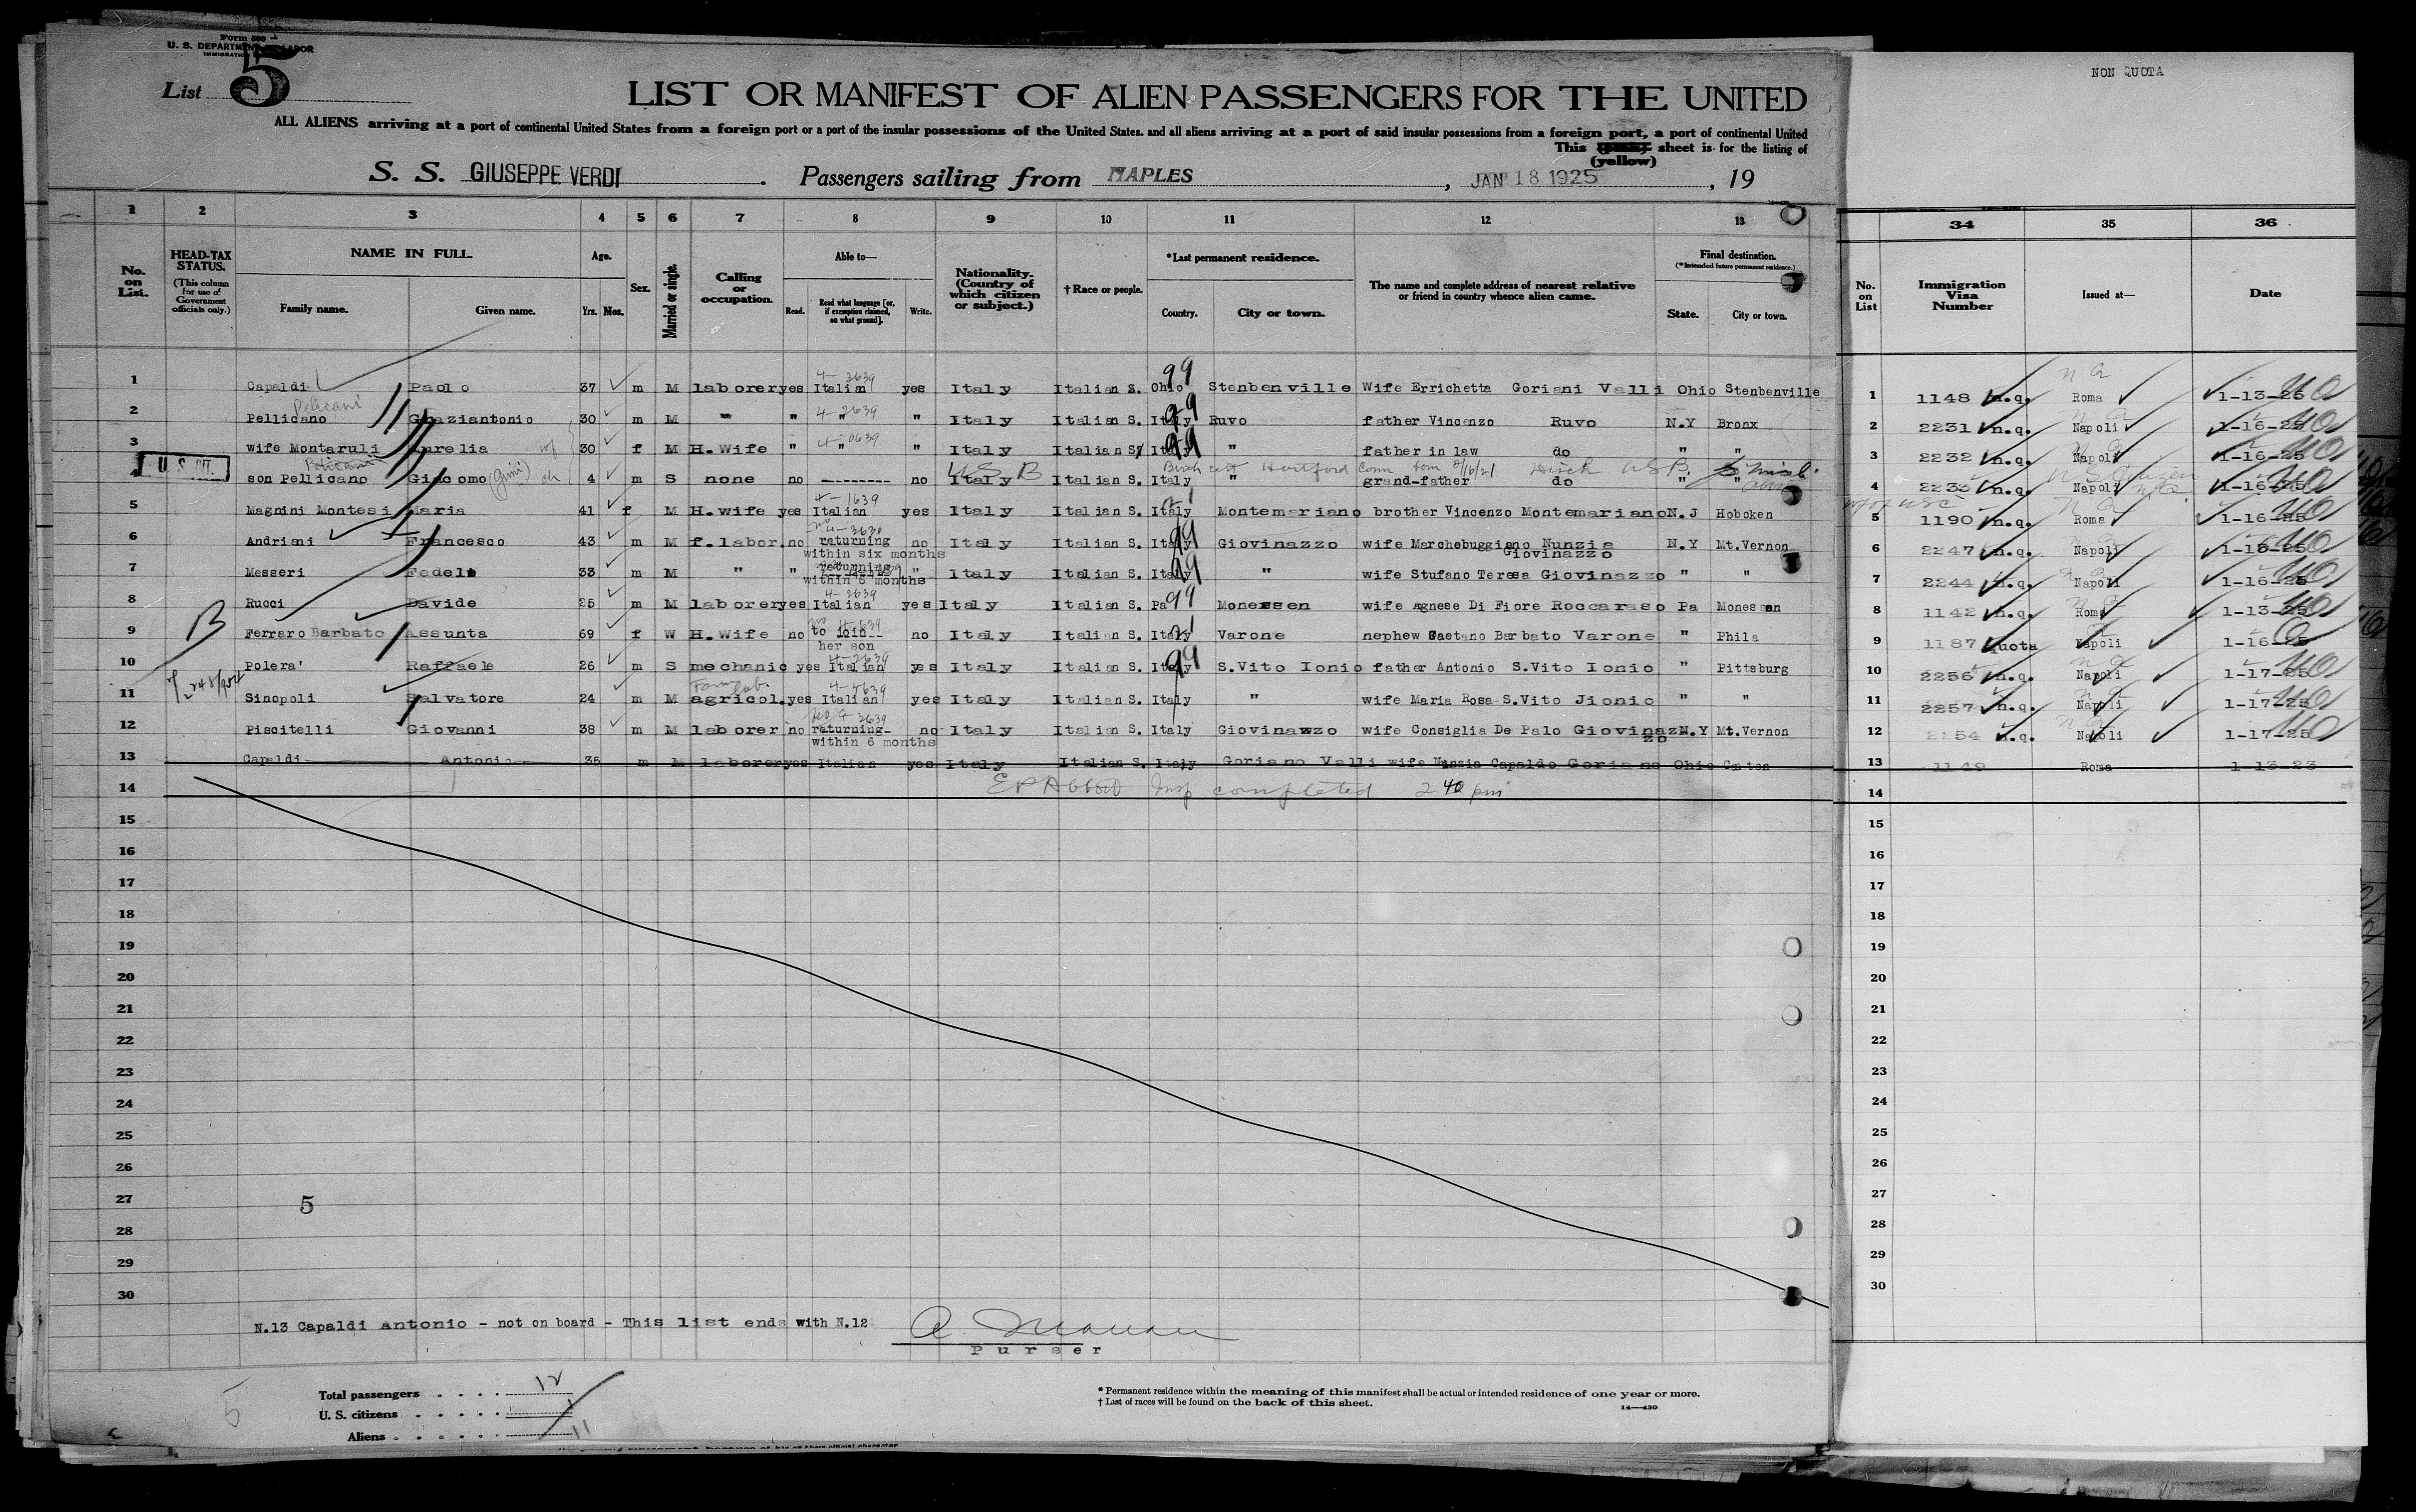 Form 500
U. S. DEPARTMENT OF LABOR
IMMIGRATION
NON QUOTA
List 5
LIST OR MANIFEST OF ALIEN PASSENGERS FOR THE UNITED
ALL ALIENS arriving at a port of continental United States from a foreign port or a port of the insular possessions of the United States, and all aliens arriving at a port of said insular possessions from a foreign port, a port of continental United
This sheet is for the listing of
(yellow)
S. S. GIUSEPPE VERDI. Passengers sailing from NAPLES, JAN 18 1925, 19
1 2 3 4 5 6 7 8 9 10 11 12 13 34 35 36
No. on List.
HEAD-TAX STATUS. (This column for use of Government officials only.)
NAME IN FULL. Family name. Given name.
Age. Yrs. Mos.
Sex.
Married or single.
Calling or occupation.
Able to— Read. Read what language [or, if exemption claimed, on what ground]. Write.
Nationality. (Country of which citizen or subject.)
† Race or people.
*Last permanent residence. Country. City or town.
The name and complete address of nearest relative or friend in country whence alien came.
Final destination. (*Intended future permanent residence.) State. City or town.
No. on List
Immigration Visa Number
Issued at—
Date
1 Capaldi Paolo 37 m M laborer yes Italian yes Italy Italian S. Ohio 99 Stenbenville Wife Errichetta Goriani Valli Ohio Stenbenville 1 1148 n.q. Roma 1-13-25
2 Pellicano Pelicani Graziantonio 30 m M " " " " Italy Italian S. Italy 99 Ruvo father Vincenzo Ruvo N.Y Bronx 2 2231 n.q. Napoli 1-16-25
3 wife Montaruli Aurelia wf 30 f M H.Wife " " " Italy Italian S. Italy 99 " father in law do " " 3 2232 n.q. Napoli 1-16-25
U.S. CIT.
4 son Pellicano Pelicani Giacomo ch 4 m S none no --------- no Italy U.S.B Italian S. Italy " grand-father do " " 4 2233 n.q. Napoli 1-16-25
Birth cert Hartford Conn
5 Magnini Montesi Maria 41 f M H.wife yes Italian yes Italy Italian S. Italy Montemariano brother Vincenzo Montemariano N.J Hoboken 5 1190 n.q. Roma 1-16-25
6 Andriani Francesco 43 m M f.labor. no returning within six months no Italy Italian S. Italy 99 Giovinazzo wife Marchebuggiano Nunzia Giovinazzo N.Y Mt.Vernon 6 2247 n.q. Napoli 1-16-25
7 Messeri Fedele 33 m M " " returning within 6 months " Italy Italian S. Italy 99 " wife Stufano Teresa Giovinazzo " " 7 2244 n.q. Napoli 1-16-25
8 Rucci Davide 25 m M laborer yes Italian yes Italy Italian S. Pa 99 Monessen wife Agnese Di Fiore Roccaraso Pa Monessen 8 1142 n.q. Roma 1-13-25
9 B Ferraro Barbato Assunta 69 f W H.Wife no to join her son no Italy Italian S. Italy Varone nephew Gaetano Barbato Varone " Phila 9 1187 quota Napoli 1-16-25
10 Polera' Raffaele 26 m S mechanic yes Italian yes Italy Italian S. Italy 99 S.Vito Ionio father Antonio S.Vito Ionio " Pittsburg 10 2256 n.q. Napoli 1-17-25
11 Sinopoli Salvatore 24 m M agricol. Farm lab. yes Italian yes Italy Italian S. Italy " wife Maria Rosa S.Vito Jionio " " 11 2257 n.q. Napoli 1-17-25
12 Piscitelli Giovanni 38 m M laborer no returning within 6 months no Italy Italian S. Italy Giovinazzo wife Consiglia De Palo Giovinazzo N.Y Mt.Vernon 12 2254 n.q. Napoli 1-17-25
13 Capaldi Antonio 35 m M laborer yes Italian yes Italy Italian S. Italy Goriano Valli wife Nunzia Capaldo Goriano Ohio Canton 13 1149 Roma 1-13-23
14 Insp completed 2 40 pm 14
15 15
16 16
17 17
18 18
19 19
20 20
21 21
22 22
23 23
24 24
25 25
26 26
27 5 27
28 28
29 29
30 30
N.13 Capaldi Antonio - not on board - This list ends with N.12
Purser
Total passengers 12
U. S. citizens 1
Aliens 11
5
* Permanent residence within the meaning of this manifest shall be actual or intended residence of one year or more.
† List of races will be found on the back of this sheet.
14—430